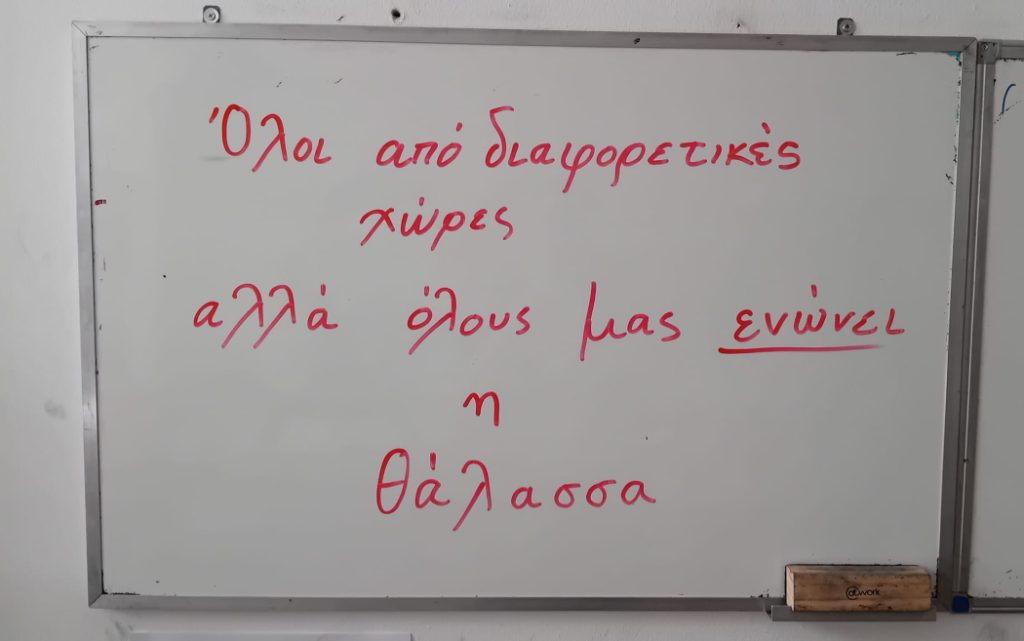 Όλοι από διαφορετικές
χώρες
αλλά όλους μας ενώνει
η
θάλασσα
@work